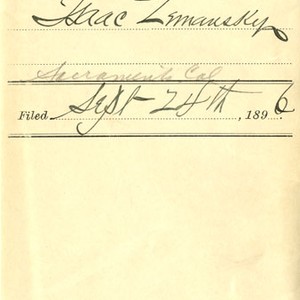 Isaac Zemansky
Sacramento Cal
Filed Sept 24th, 1896